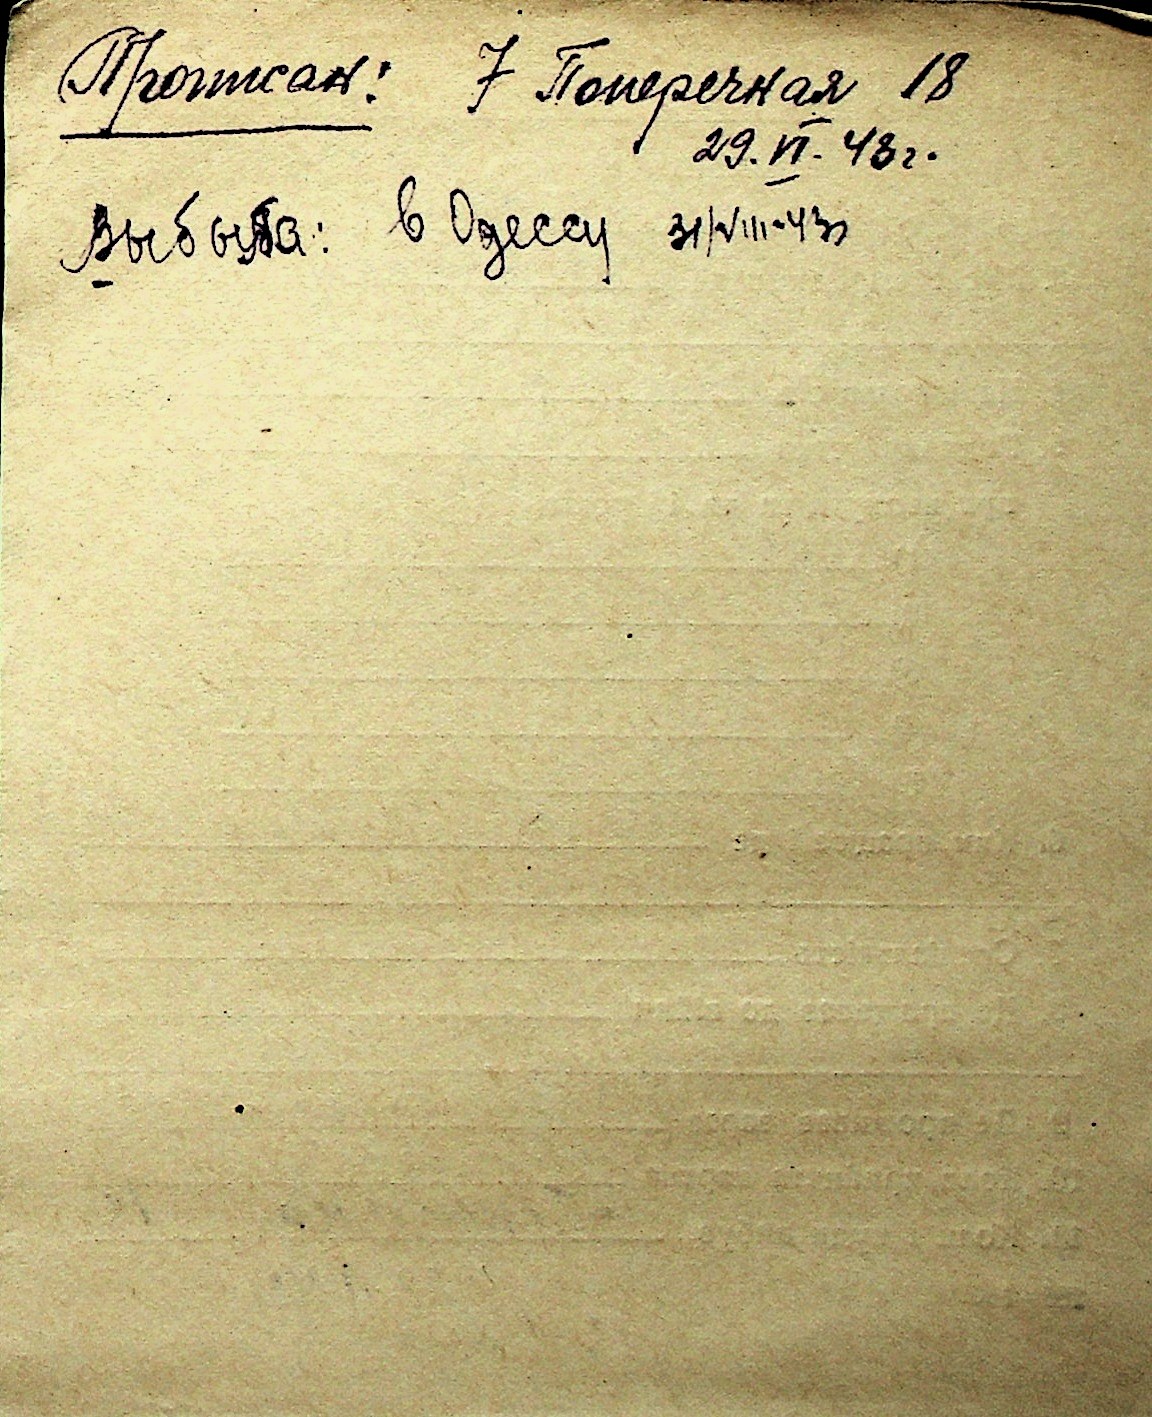 Прописан: 7 Поперечная 18
29.VI.43г.
Выбыла: в Одессу 31/VIII-43г